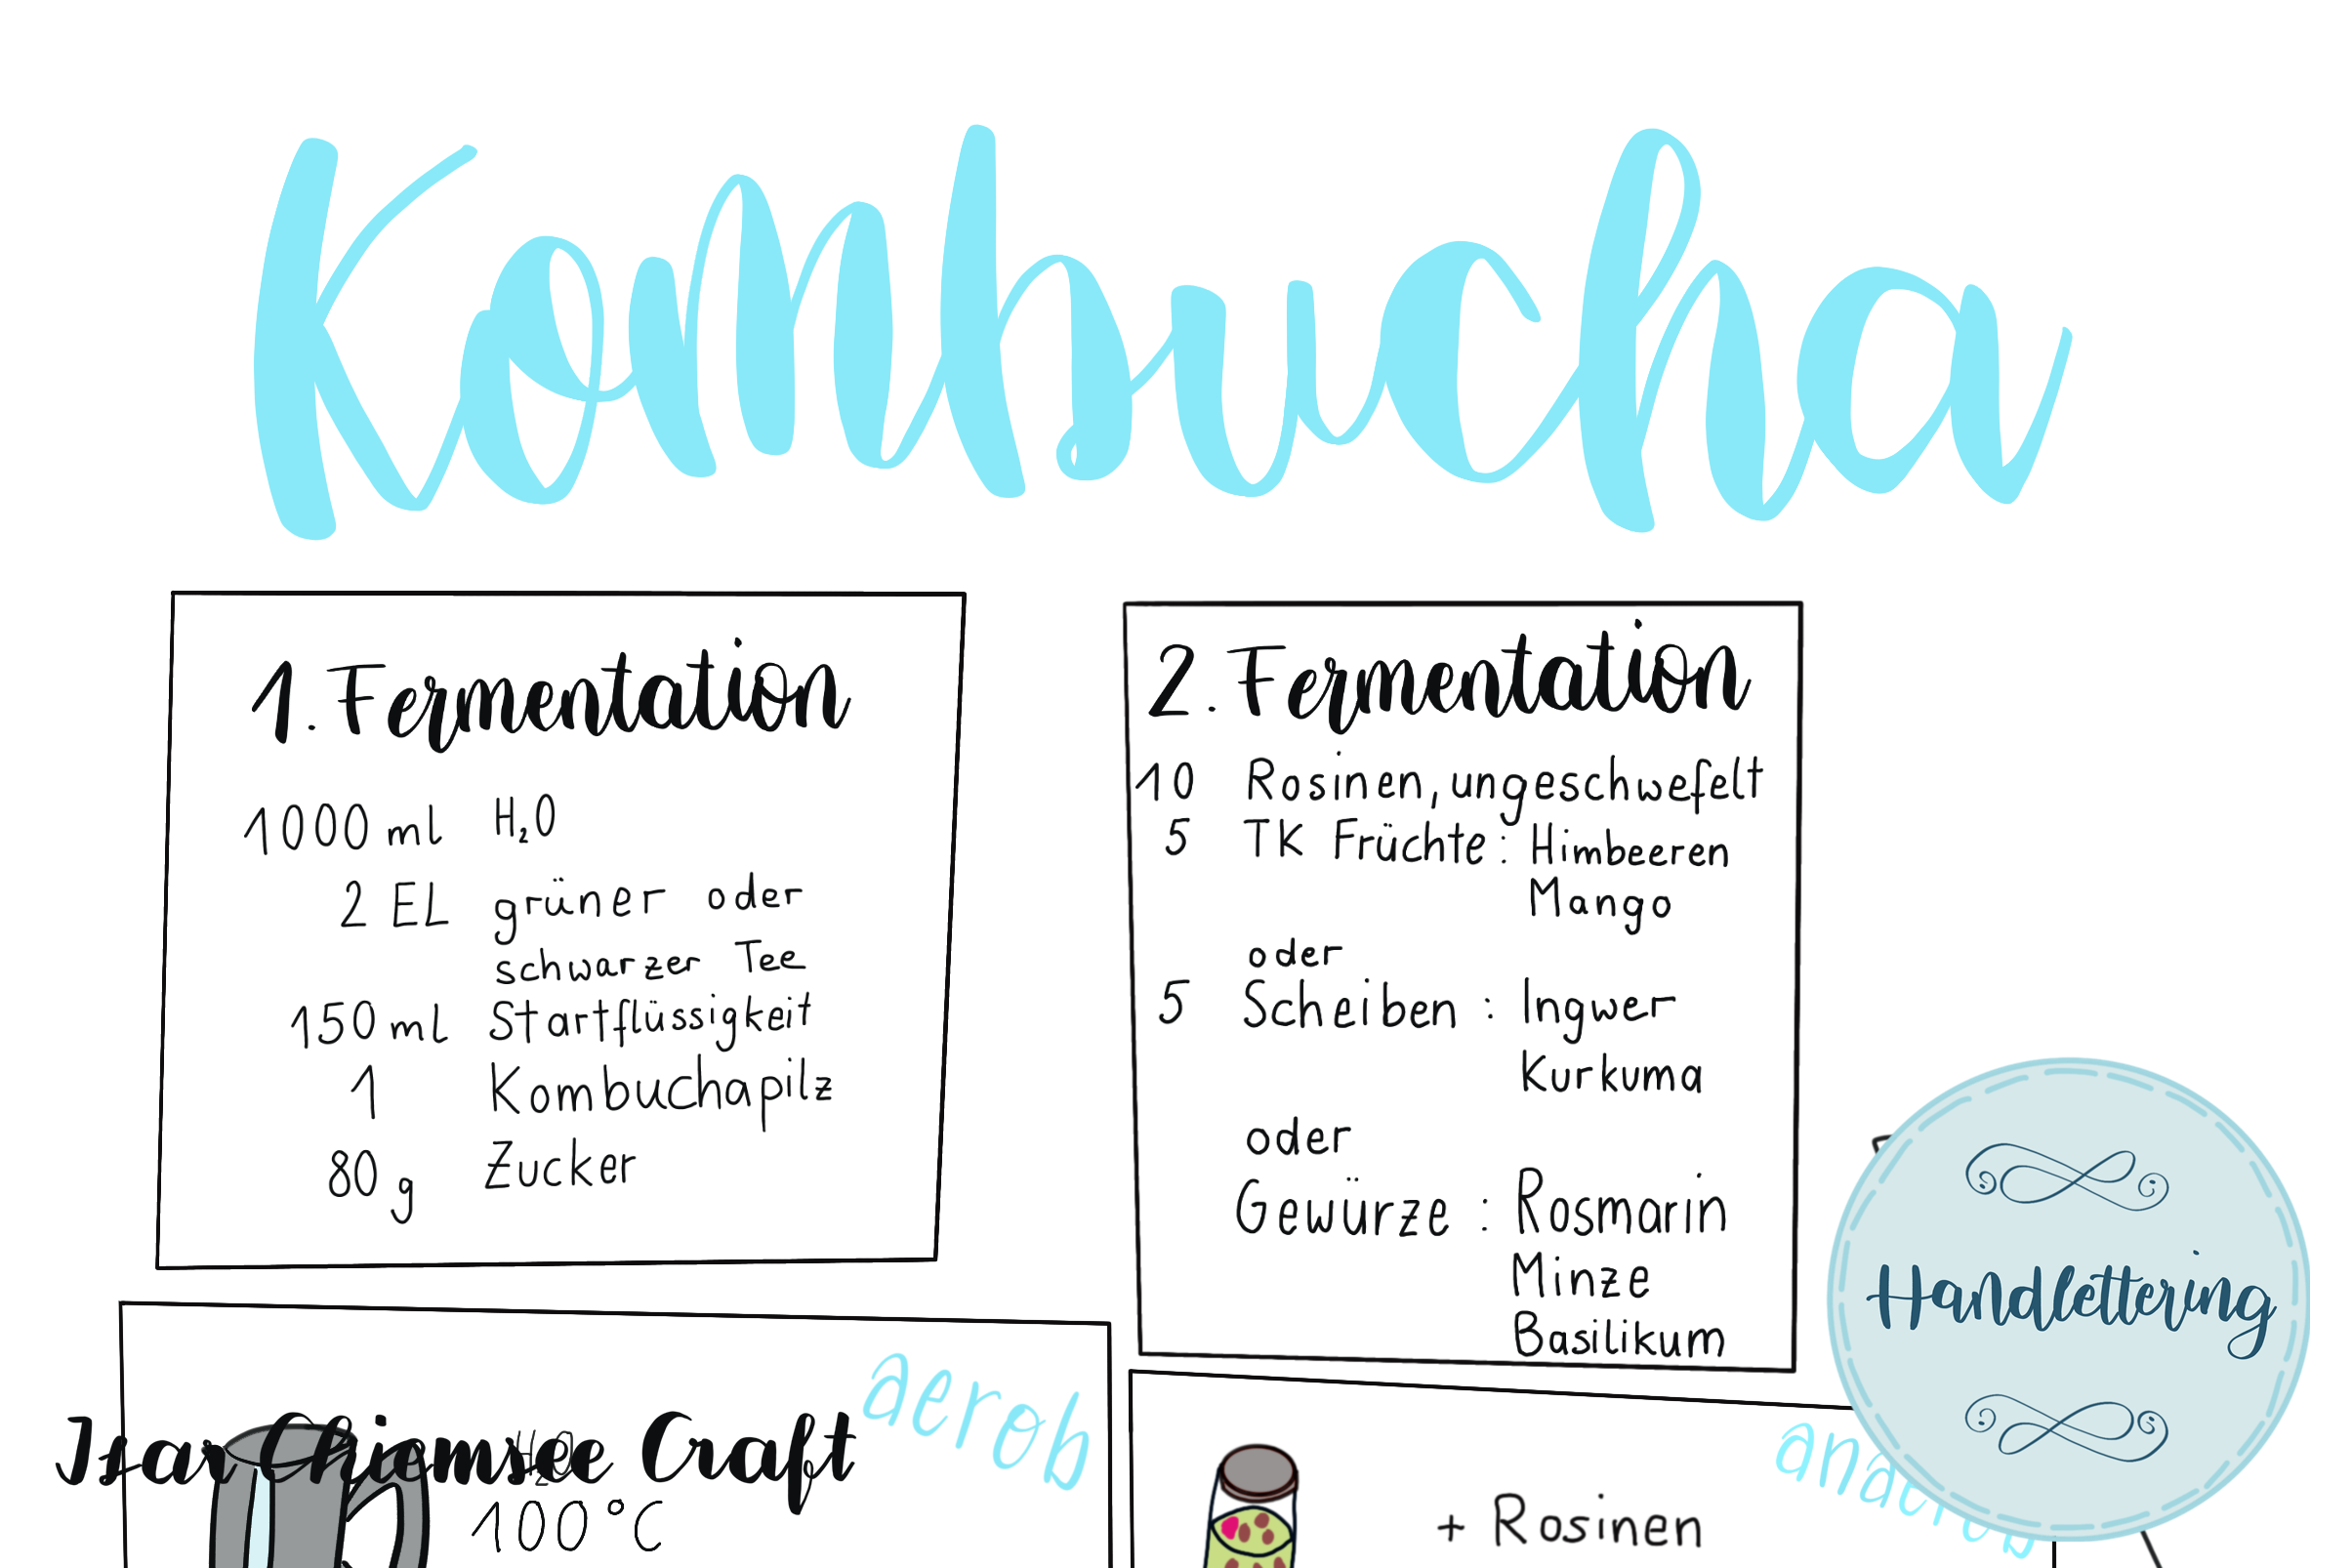 Kombucha
1. Fermentation
1000 ml H₂O
2 EL grüner oder
schwarzer Tee
150 ml Startflüssigkeit
1 Kombuchapilz
80 g Zucker
2. Fermentation
10 Rosinen, ungeschwefelt
5 TK Früchte: Himbeeren
Mango
oder
5 Scheiben: Ingwer
Kurkuma
oder
Gewürze: Rosmarin
Minze
Basilikum
Handlettering
aerob
Isar Chiemsee Craft
H₂O
100°C
+ Rosinen